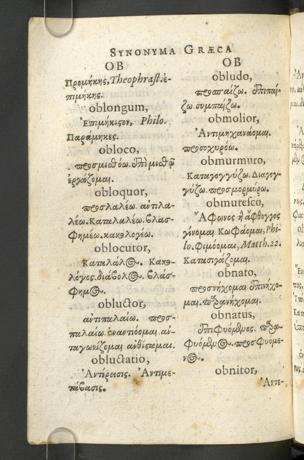 SYNONYMA GRÆCA
OB
Προμήκης, Theophrast. ἐ-
πιμήκης.
oblongum,
Ἐπιμήκιςον, Philo.
Παράμηκες.
obloco,
προσμισθόω. ὑπομισθῶ
ἐργάζομαι.
obloquor,
προσλαλέω. ἀντιλα-
λέω. Καταλαλέω. βλασ-
φημέω. κακολογέω.
oblocutor,
Κατάλαλος. Κακο-
λόγος. διάβολος. βλάσ-
φημος.
obluctor,
ἀντιπαλαίω. προσ-
παλαίω. ἐναντιόομαι. ἀν-
ταγωνίζομαι. ἀνθίσταμαι.
obluctatio,
Ἀντέρεισις. Ἀντιμε-
τάβασις.
OB
obludo,
προσπαίζω. ἐπιπαί-
ζω. συμπαίζω.
obmolior,
Ἀντιμηχανάομαι.
προσοχυρόω.
obmurmuro,
Καταγογγύζω. Διαγογ-
γύζω. προσμορμύρω.
obmutesco,
Ἄφωνος ἢ ἄφθογγος
γίνομαι. Κωφάομαι, Phi-
lo. Φιμόομαι, Matth. 22.
Κατασιγάζομαι.
obnato,
προσνήχομαι. ἐπινήχο-
μαι. παρανήχομαι.
obnatus,
ἐπιφυόμενος. παρα-
φυόμενος. προσφυόμε-
νος.
obnitor,
Ἀντε-